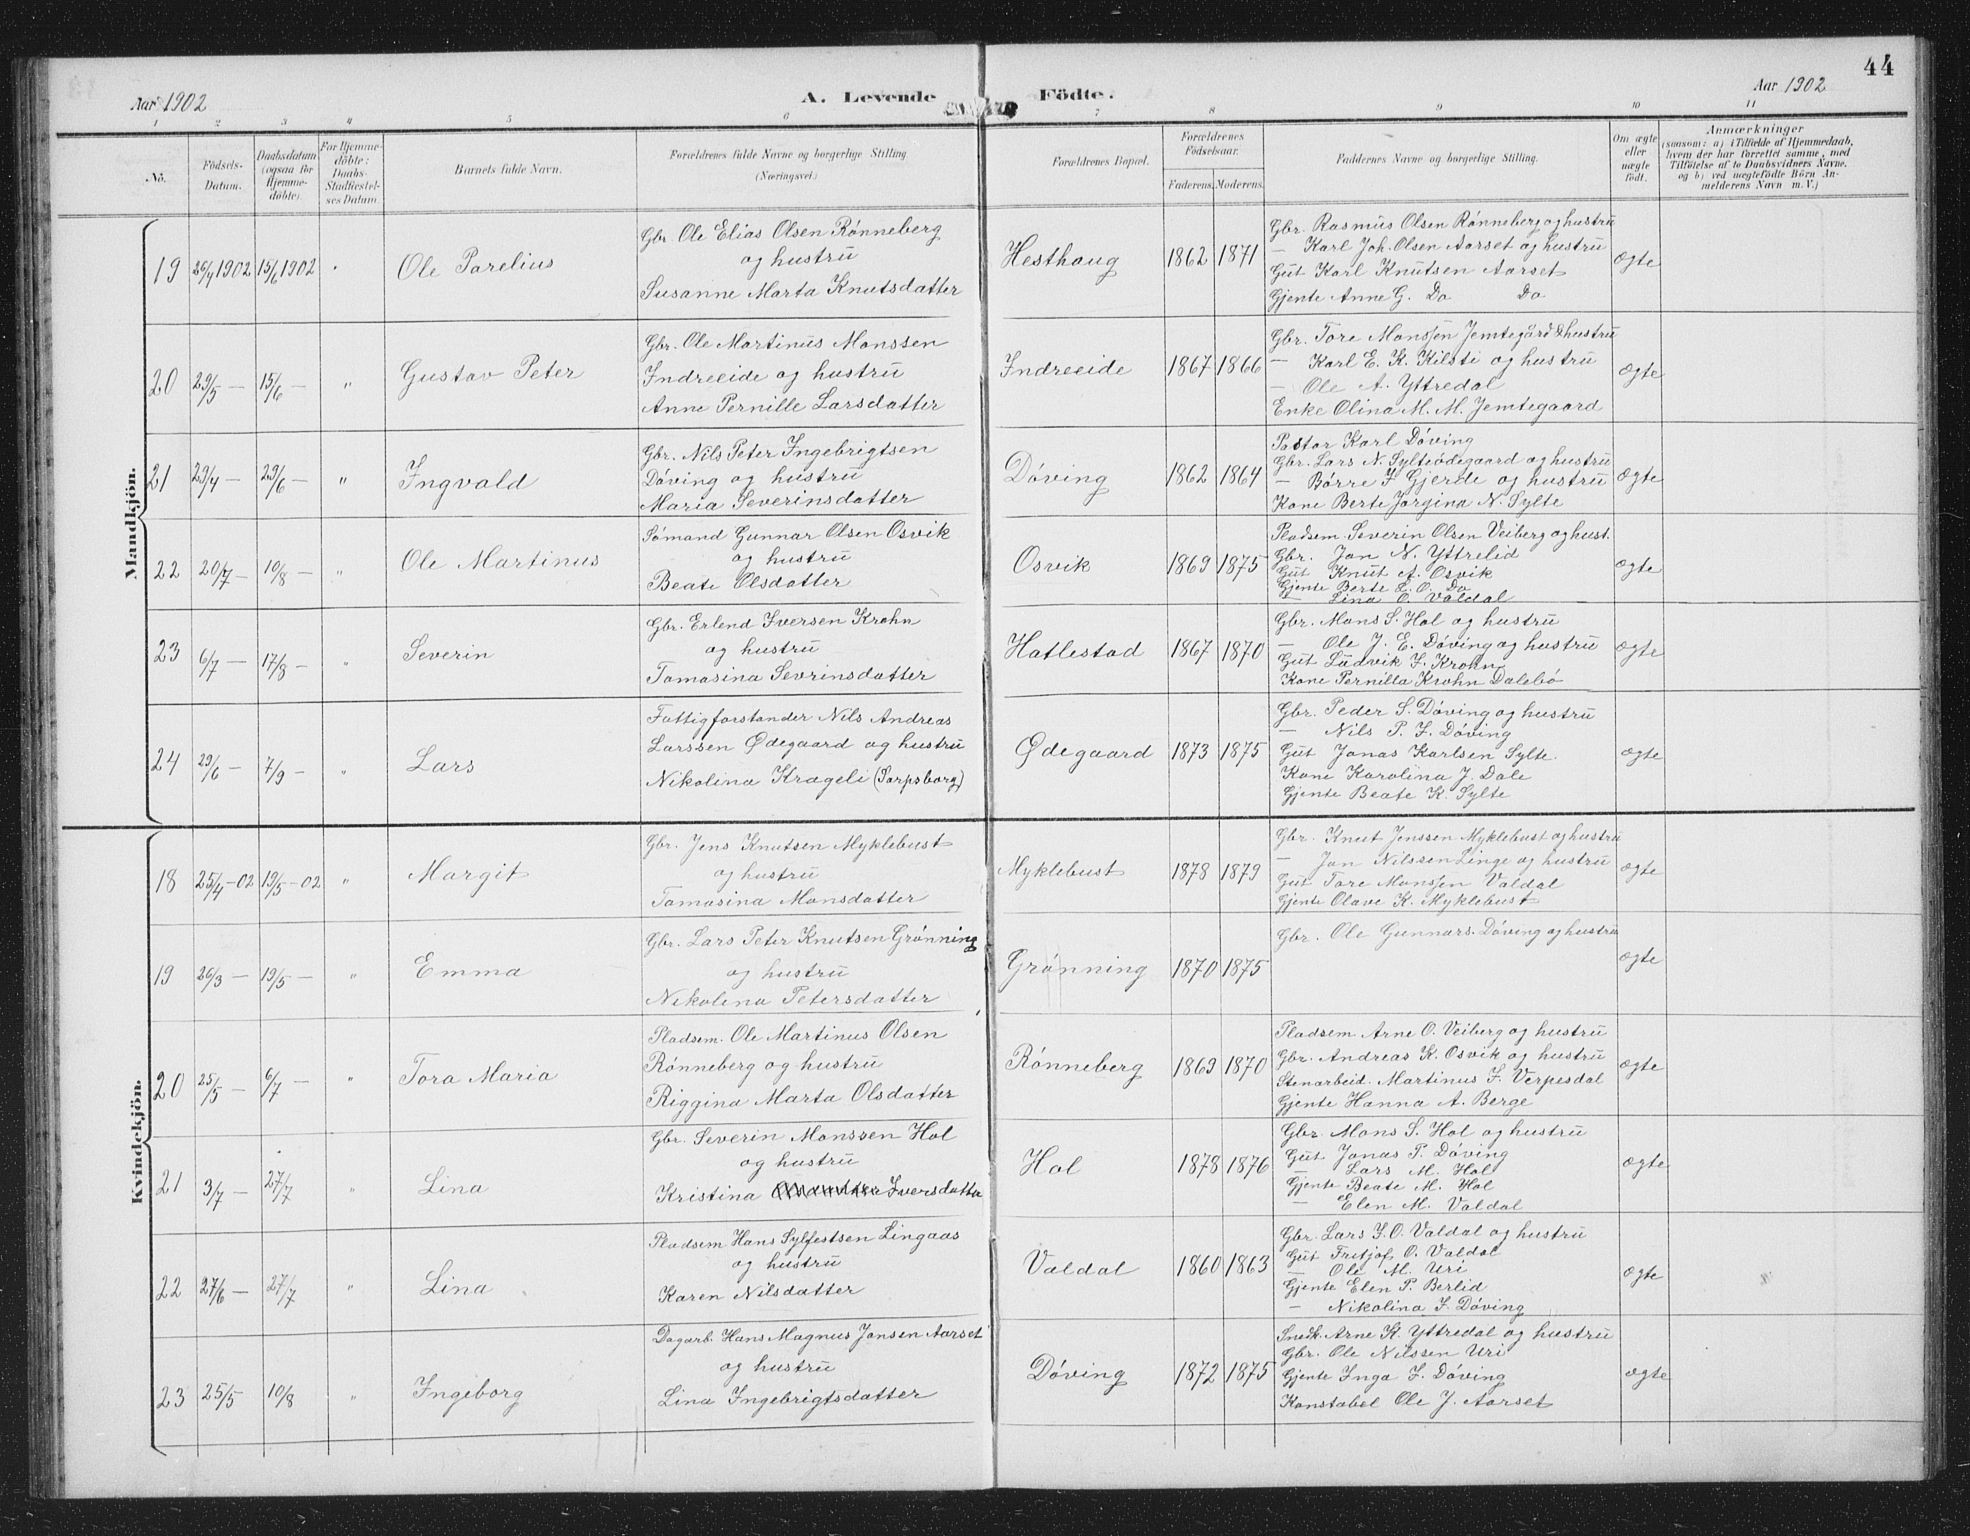 44
Aar 1902
A. Levende Födte.
Aar 1902
1 2 3 4 5 6 7 8 9 10 11
No.
Födsels-Datum.
Daabsdatum (ogsaa for Hjemme-döbte).
For Hjemme-döbte: Daabs-Stadfæstel-ses Datum.
Barnets fulde Navn.
Forældrenes fulde Navne og borgerlige Stilling.
(Næringsvei.)
Forældrenes Bopæl.
Forældrenes Födselsaar.
Faderens. Moderens.
Faddernes Navne og borgerlige Stilling.
Om ægte eller uægte födt.
Anmærkninger
(saasom: a) i Tilfælde af Hjemmedaab,
hvem der har forrettet samme, med
Tilföielse af to Daabsvidners Navne.
og b) ved uægtefödte Börn An-
melderens Navn m. V.)
Mandkjön.
19 26/4 1902 15/6 1902 " Ole Parelius
Gbr. Ole Elias Olsen Rønneberg
og hustru
Susanne Marta Knutsdatter
Hesthaug 1862 1871
Gbr. Rasmus Olsen Rønneberg og hustru
— Karl Joh. Olsen Aarset og hustru
Gut Karl Knutsen Aarset
Gjente Anne G. Do Do
ægte
20 29/5 — 15/6 — " Gustav Peter
Gbr. Ole Martinus Monssen
Indreeide og hustru
Anne Pernille Larsdatter
Indreeide 1867 1866
Gbr. Tore Monssen Jemtegård & hustru
— Karl E. K. Kilsti og hustru
— Ole A. Yttredal
Enke Olina M. M. Jemtegaard
ægte
21 29/4 — 29/6 — " Ingvald
Gbr. Nils Peter Ingebrigtsen
Døving og hustru
Maria Severinsdatter
Døving 1862 1864
Pastor Karl Døving
Gbr. Lars N. Sylteødegaard og hustru
— Børre I Gjerde og hustru
Kone Berte Jorgina N. Sylte
ægte
22 20/7 — 10/8 — " Ole Martinus
Sømand Gunnar Olsen Osvik
og hustru
Beate Olsdatter
Osvik 1869 1875
Pladsem. Severin Olsen Veiberg og hust.
Gbr. Jon N. Yttrelid
Gut Knut A. Osvik
Gjente Berte E. O. Do
— Lina O. Valdal
ægte
23 6/7 — 17/8 — " Severin
Gbr. Erlend Iversen Krohn
og hustru
Tomasina Sevrinsdatter
Hatlestad 1867 1870
Gbr. Mons S. Hol og hustru
— Ole J. E. Døving og hustru
Gut Ludvik I. Krohn
Kone Pernilla Krohn Dalebø
ægte
24 29/6 — 7/9 — " Lars
Fattigforstander Nils Andreas
Larssen Ødegaard og hustru
Nikolina Krageli (Sarpsborg)
Ødegaard 1873 1875
Gbr. Peder S. Døving og hustru
— Nils P. I. Døving
Gut Jonas Karlsen Sylte.
Kone Karolina J. Dale
Gjente Beate K. Sylte
ægte
Kvindekjön.
18 25/4-02 19/5-02 " Margit
Gbr. Jens Knutsen Myklebust
og hustru
Tomasina Monsdatter
Myklebust 1878 1879
Gbr. Knut Jenssen Myklebust og hustru
— Jon Nilssen Linge og hustru
Gut Tore Monssen Valdal
Gjente Olave K. Myklebust
ægte
19 26/3 — 19/5 — " Emma
Gbr. Lars Peter Knutsen Grønning
og hustru
Nikolina Petersdatter
Grønning 1870 1875
Gbr. Ole Gunnars. Døving og hustru
ægte
20 25/5 — 6/7 — " Tora Maria
Pladsem. Ole Martinus Olsen
Rønneberg og hustru
Riggina Marta Olsdatter
Rønneberg 1869 1870
Pladsem Arne O. Veiberg og hustru
Gbr. Andreas K. Osvik og hustru
Stenarbeid. Martinus I. Verpesdal
Gjente Hanna A. Berge
ægte
21 3/7 — 27/7 " Lina
Gbr. Severin Monssen Hol
og hustru
Kristina Iversdatter
Hol 1878 1876
Gbr. Mons S. Hol og hustru
Gut Jonas P. Døving
— Lars M. Hol
Gjente Beate M. Hol
— Elen M. Valdal
ægte
22 27/6 — 27/7 " Lina
Pladsem Hans Sylfestsen Lingaas
og hustru
Karen Nilsdatter
Valdal 1860 1863
Gbr. Lars I. O. Valdal og hustru
Gut Fritjof O. Valdal
— Ole M. Uri
Gjente Elen P. Berlid
— Nikolina I. Døving
ægte
23 25/5 10/8 " Ingeborg
Dagarb. Hans Magnus Jonsen Aarset
og hustru
Lina Ingebrigtsdatter
Døving 1872 1875
Snedk. Arne K. Yttredal og hustru
Gbr. Ole Nilssen Uri
Gjente Inga I. Døving
Konstabel Ole J. Aarset
ægte